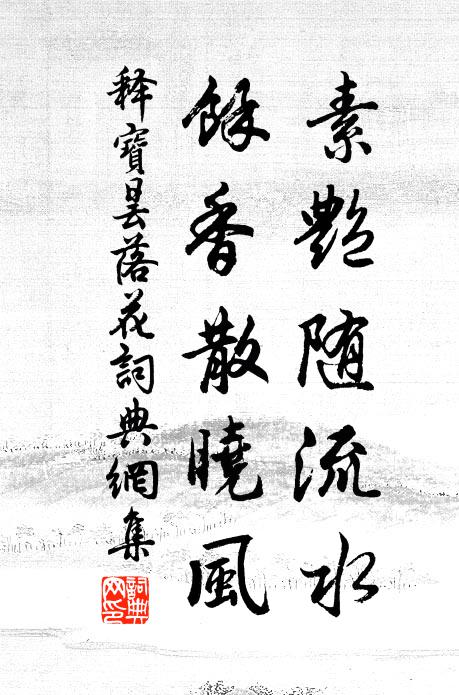 素艷随流水
餘香散曉風
释寶曇落花詞典網集
詞典网印